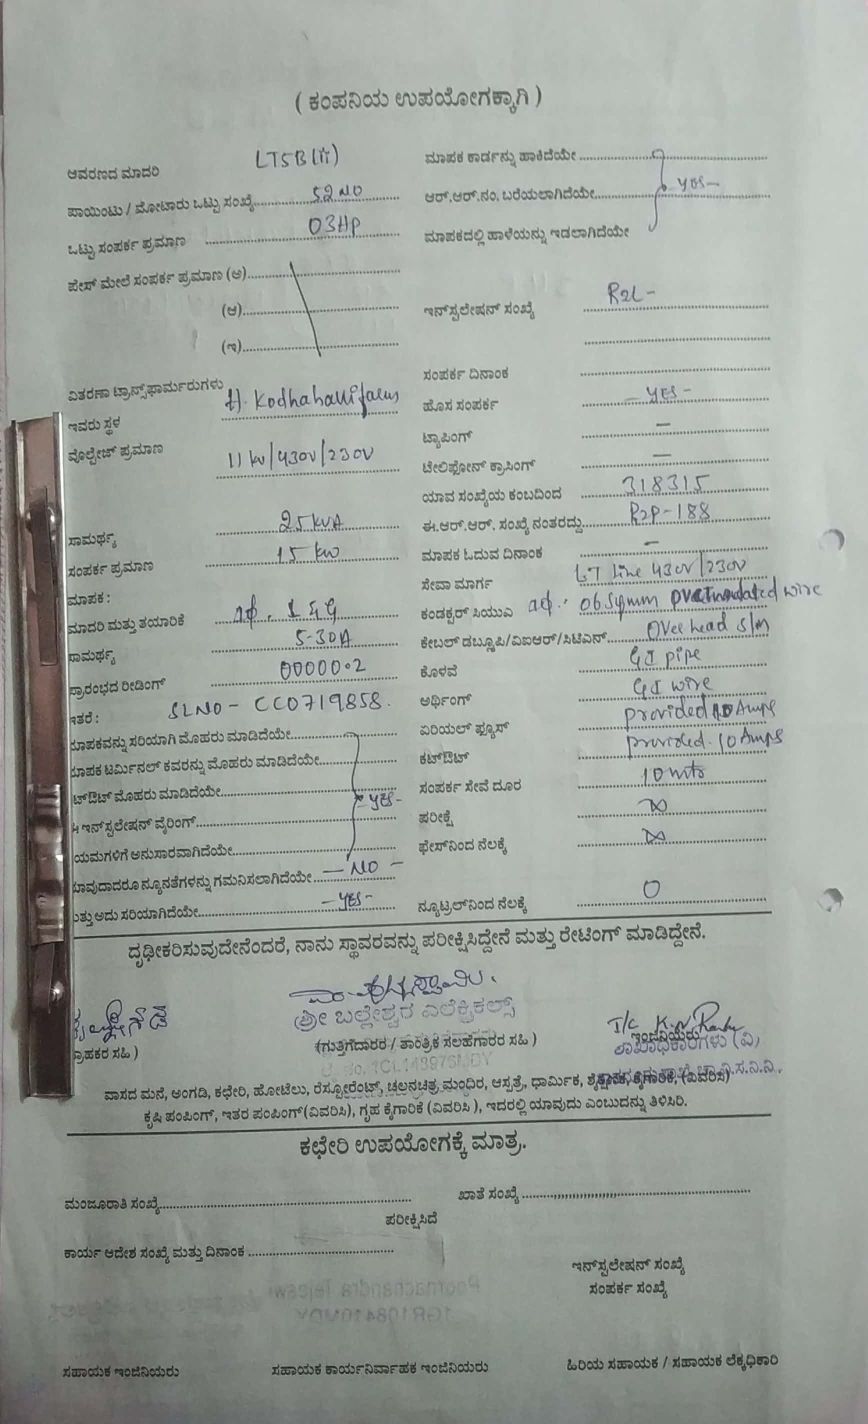 ( ಕಂಪನಿಯ ಉಪಯೋಗಕ್ಕಾಗಿ )
ಆವರಣದ ಮಾದರಿ LT5B(ii)
ಪಾಯಿಂಟು / ಮೋಟಾರು ಒಟ್ಟು ಸಂಖ್ಯೆ
ಒಟ್ಟು ಸಂಪರ್ಕ ಪ್ರಮಾಣ 03HP
ಪೇಸ್ ಮೇಲೆ ಸಂಪರ್ಕ ಪ್ರಮಾಣ (ಅ)
(ಆ)
(ಇ)
ವಿತರಣಾ ಟ್ರಾನ್ಸ್‌ಫಾರ್ಮರುಗಳು
ಇವರು ಸ್ಥಳ
ವೊಲ್ಟೇಜ್ ಪ್ರಮಾಣ 11KV/430V/230V
ಸಾಮರ್ಥ್ಯ 25KVA
ಸಂಪರ್ಕ ಪ್ರಮಾಣ 15KW
ಮಾಪಕ :
ಮಾದರಿ ಮತ್ತು ತಯಾರಿಕೆ
ಸಾಮರ್ಥ್ಯ 5-30A
ಪ್ರಾರಂಭದ ರೀಡಿಂಗ್ 00000.2
ಇತರೆ : SLNO - CC0719858.
ಮಾಪಕವನ್ನು ಸರಿಯಾಗಿ ಮೊಹರು ಮಾಡಿದೆಯೇ
ಮಾಪಕ ಟರ್ಮಿನಲ್ ಕವರನ್ನು ಮೊಹರು ಮಾಡಿದೆಯೇ
ಟ್‌ಔಟ್ ಮೊಹರು ಮಾಡಿದೆಯೇ YES-
ಇನ್‌ಸ್ಟಲೇಷನ್ ವೈರಿಂಗ್
ಯಮಗಳಿಗೆ ಅನುಸಾರವಾಗಿದೆಯೇ
ಯಾವುದಾದರೂ ನ್ಯೂನತೆಗಳನ್ನು ಗಮನಿಸಲಾಗಿದೆಯೇ - NO -
ಮತ್ತು ಅದು ಸರಿಯಾಗಿದೆಯೇ -YES-
ಮಾಪಕ ಕಾರ್ಡನ್ನು ಹಾಕಿದೆಯೇ
ಆರ್.ಆರ್.ನಂ. ಬರೆಯಲಾಗಿದೆಯೇ YES-
ಮಾಪಕದಲ್ಲಿ ಹಾಳೆಯನ್ನು ಇಡಲಾಗಿದೆಯೇ
ಇನ್‌ಸ್ಟಲೇಷನ್ ಸಂಖ್ಯೆ
ಸಂಪರ್ಕ ದಿನಾಂಕ
ಹೊಸ ಸಂಪರ್ಕ -YES-
ಟ್ಯಾಪಿಂಗ್ —
ಟೇಲಿಫೋನ್ ಕ್ರಾಸಿಂಗ್ —
ಯಾವ ಸಂಖ್ಯೆಯ ಕಂಬದಿಂದ 318315
ಈ.ಆರ್.ಆರ್. ಸಂಖ್ಯೆ ನಂತರದ್ದು R2P-188
ಮಾಪಕ ಓದುವ ದಿನಾಂಕ —
ಸೇವಾ ಮಾರ್ಗ LT line 430V/230V
ಕಂಡಕ್ಟರ್ ಸಿಯುಎ 06Sqmm wire
ಕೇಬಲ್ ಡಬ್ಲ್ಯೂಪಿ/ವಿಐಆರ್/ಸಿಟಿಎಸ್ Over head
ಕೊಳವೆ GI pipe
ಅರ್ಥಿಂಗ್ GI wire
ಏರಿಯಲ್ ಫ್ಯೂಸ್ provided 10 Amps
ಕಟ್‌ಔಟ್ provided. 10 Amps
ಸಂಪರ್ಕ ಸೇವೆ ದೂರ 10 mts
ಪರೀಕ್ಷೆ ∞
ಫೇಸ್‌ನಿಂದ ನೆಲಕ್ಕೆ ∞
ನ್ಯೂಟ್ರಲ್‌ನಿಂದ ನೆಲಕ್ಕೆ 0
ದೃಢೀಕರಿಸುವುದೇನೆಂದರೆ, ನಾನು ಸ್ಥಾವರವನ್ನು ಪರೀಕ್ಷಿಸಿದ್ದೇನೆ ಮತ್ತು ರೇಟಿಂಗ್ ಮಾಡಿದ್ದೇನೆ.
ಶ್ರೀ ಬಲ್ಲೇಶ್ವರ ಎಲೆಕ್ಟ್ರಿಕಲ್ಸ್
ಗ್ರಾಹಕರ ಸಹಿ ) (ಗುತ್ತಿಗೆದಾರರ / ತಾಂತ್ರಿಕ ಸಲಹೆಗಾರರ ಸಹಿ ) ಇಂಜಿನಿಯರು
ವಾಸದ ಮನೆ, ಅಂಗಡಿ, ಕಛೇರಿ, ಹೋಟೆಲು, ರೆಸ್ಟೋರೆಂಟ್, ಚಲನಚಿತ್ರ ಮಂದಿರ, ಆಸ್ಪತ್ರೆ, ಧಾರ್ಮಿಕ, ಶೈಕ್ಷಣಿಕ, ಕೈಗಾರಿಕೆ, (ವಿವರಿಸಿ)
ಕೃಷಿ ಪಂಪಿಂಗ್, ಇತರ ಪಂಪಿಂಗ್(ವಿವರಿಸಿ), ಗೃಹ ಕೈಗಾರಿಕೆ (ವಿವರಿಸಿ ), ಇದರಲ್ಲಿ ಯಾವುದು ಎಂಬುದನ್ನು ತಿಳಿಸಿರಿ.
ಕಛೇರಿ ಉಪಯೋಗಕ್ಕೆ ಮಾತ್ರ.
ಮಂಜೂರಾತಿ ಸಂಖ್ಯೆ ಖಾತೆ ಸಂಖ್ಯೆ
ಪರೀಕ್ಷಿಸಿದೆ
ಕಾರ್ಯ ಆದೇಶ ಸಂಖ್ಯೆ ಮತ್ತು ದಿನಾಂಕ
ಇನ್‌ಸ್ಟಲೇಷನ್ ಸಂಖ್ಯೆ
ಸಂಪರ್ಕ ಸಂಖ್ಯೆ
ಸಹಾಯಕ ಇಂಜಿನಿಯರು ಸಹಾಯಕ ಕಾರ್ಯನಿರ್ವಾಹಕ ಇಂಜಿನಿಯರು ಹಿರಿಯ ಸಹಾಯಕ / ಸಹಾಯಕ ಲೆಕ್ಕಧಿಕಾರಿ